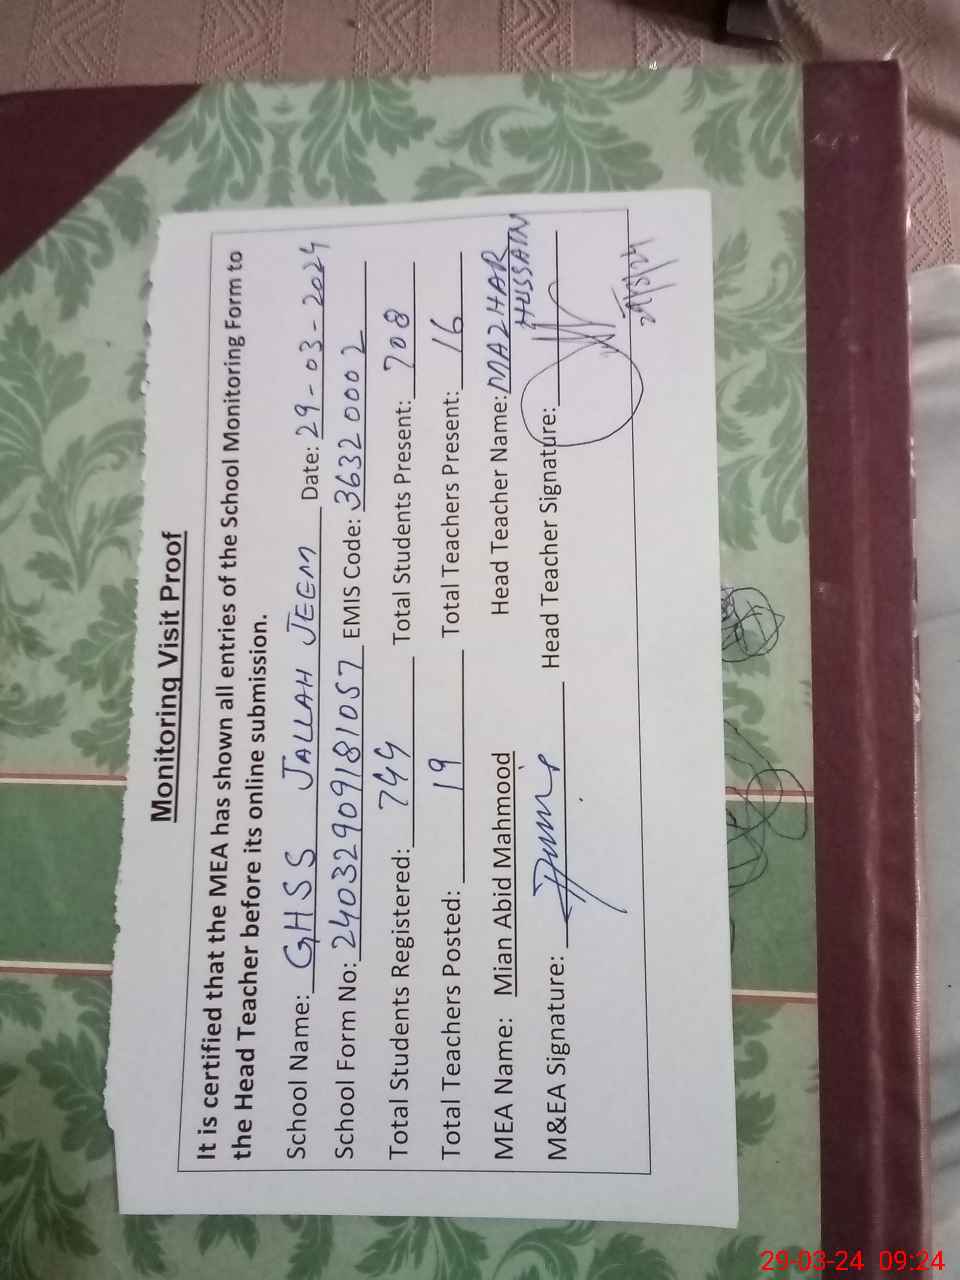 Monitoring Visit Proof
It is certified that the MEA has shown all entries of the School Monitoring Form to
the Head Teacher before its online submission.
School Name: GHSS JALLAH JEEM Date: 29-03-2024
School Form No: 24032909181057 EMIS Code: 36320002
Total Students Registered: 744 Total Students Present: 708
Total Teachers Posted: 19 Total Teachers Present: 16
MEA Name: Mian Abid Mahmood Head Teacher Name: MAZHAR
HUSSAIN
M&EA Signature: Head Teacher Signature:
29/3/24
29-03-24 09:24